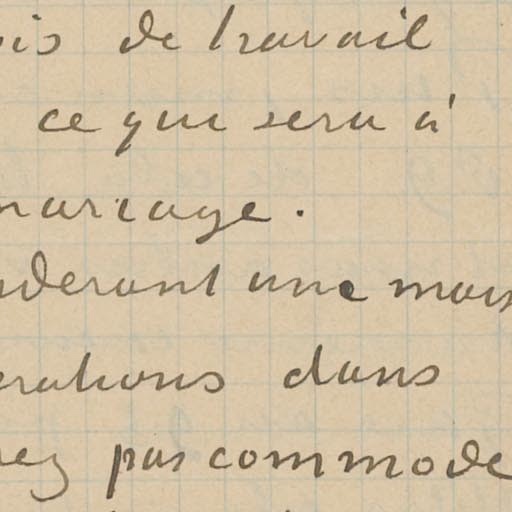 is de travail
ce qui sera à
mariage.
deront une mais
erations dans
rez pas commode